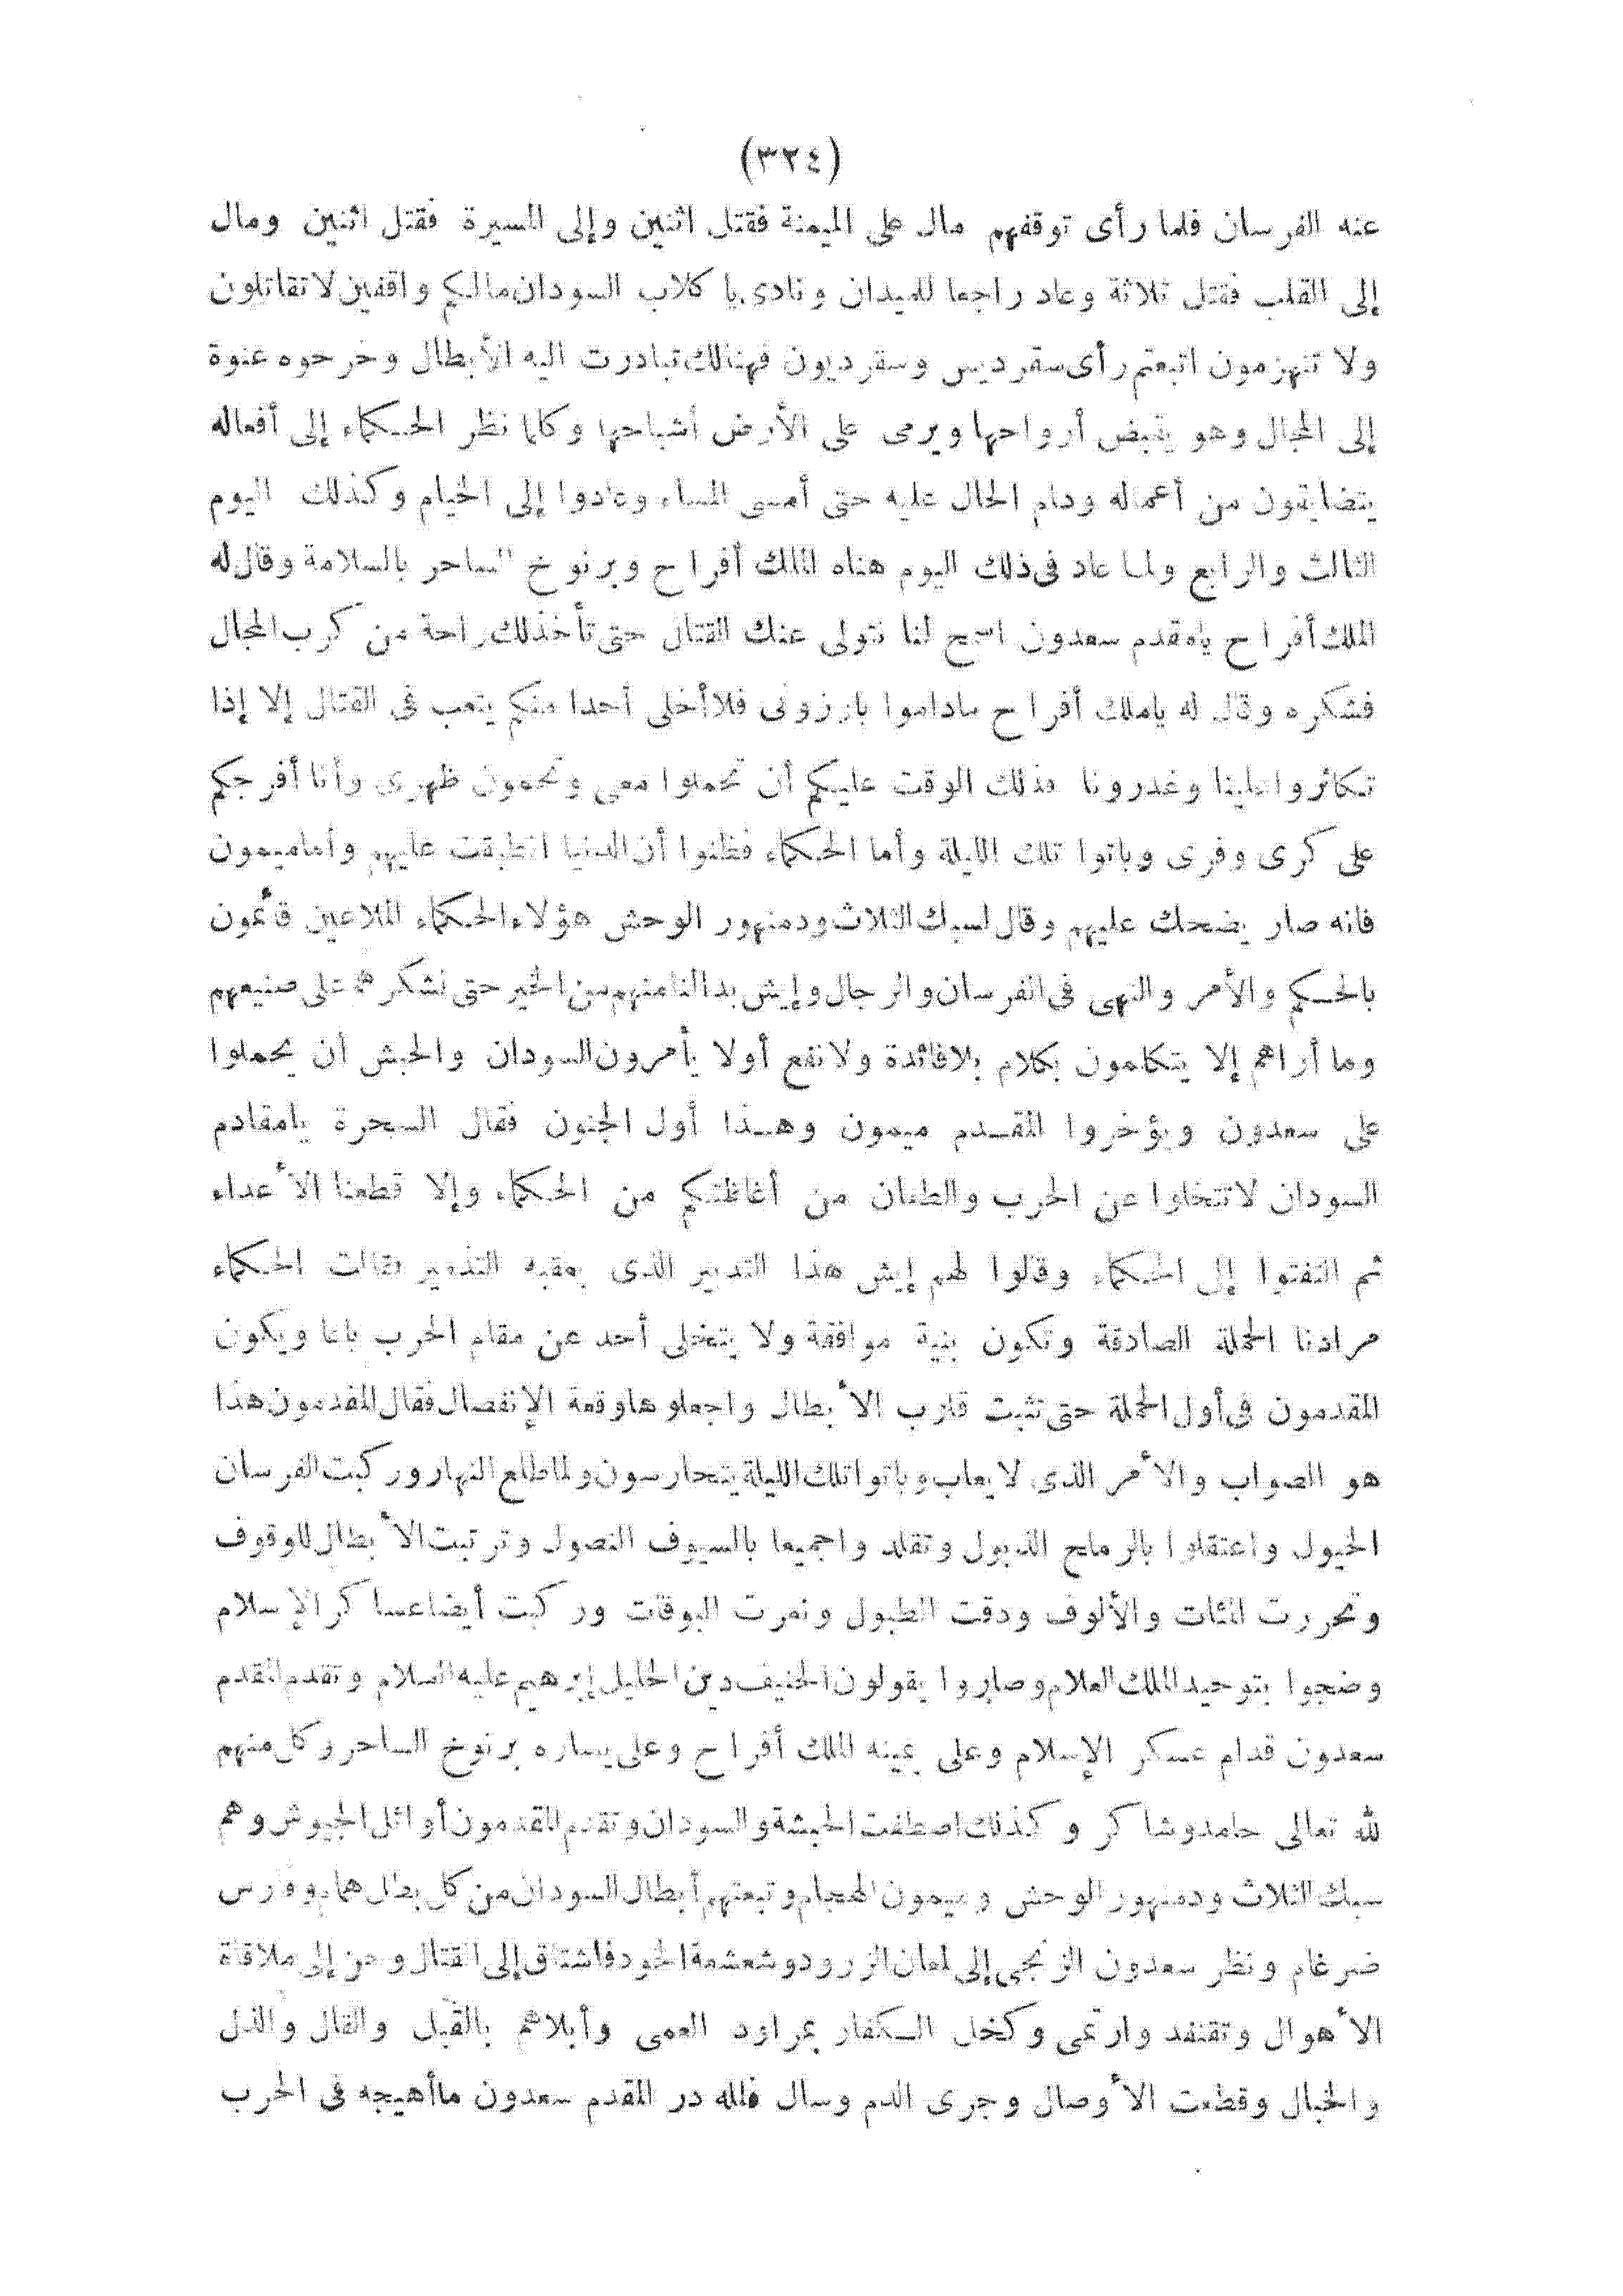 (٣٢٤)
عنه الفرسان فلما رأى توقفهم مال على الميمنة فقتل اثنين وإلى المسيرة فقتل اثنين ومال
إلى القلب فقتل ثلاثة وعاد راجعا للميدان ونادى يا كلاب السودان مالكم واقفين لا تقاتلون
ولا تنهزمون اتبعتم رأى سقرديس وسقرديون فهنالك تبادرت اليه الأبطال وخرحوه عنوة
إلى المجال وهو يقبض أرواحها ويرمى على الأرض أشباحها وكلما نظر الحكماء إلى أفعاله
يتضايقون من أعماله ودام الحال عليه حتى أمسى المساء وعادوا إلى الخيام وكذلك اليوم
الثالث والرابع ولما عاد فى ذلك اليوم هناه الملك أفراح وبرنوخ الساحر بالسلامة وقال له
الملك أفراح يامقدم سعدون اسمح لنا نتولى عنك القتال حتى تأخذ لك راحة من كرب المجال
فشكره وقال له ياملك أفراح ماداموا بارزونى فلا أخلى أحدا منكم يتعب فى القتال إلا إذا
تكاثروا علينا وغدرونا فذلك الوقت عليكم أن تحملوا معى وتحمون ظهرى وأنا أفرجكم
على كرى وفرى وباتوا تلك الليلة وأما الحكماء فظنوا أن الدنيا انطبقت عليهم وأما ميمون
فانه صار يضحك عليهم وقال لسبك الثلاث ودمنهور الوحش هؤلاء الحكماء الملاعين قائمون
بالحكم والأمر والنهى فى الفرسان والرجال وإيش بدا لنا منهم من الخير حتى نشكرهم على صنيعهم
وما أراهم إلا يتكلمون بكلام بلا فائدة ولا نفع أولا يأمرون السودان والحبش أن يحملوا
على سعدون ويؤخروا المقدم ميمون وهذا أول الجنون فقال السحرة يامقادم
السودان لا تتخلوا عن الحرب والطعان من أغاظتكم من الحكماء وإلا قطعنا الأعداء
ثم التفتوا إلى الحكماء وقالوا لهم إيش هذا التدبير الذى يعقبه التدمير فقالت الحكماء
مرادنا الحملة الصادقة وتكون بنية موافقة ولا يتخلى أحد عن مقام الحرب باتا ويكون
المقدمون فى أول الحملة حتى تثبت قلوب الأبطال واجعلوها وقعة الإنفصال فقال المقدمون هذا
هو الصواب والأمر الذى لا يعاب وباتوا تلك الليلة يتحارسون ولما طلع النهار وركبت الفرسان
الخيول واعتقلوا بالرماح الذبول وتقلدواجميعا بالسيوف النصول وترتبت الأبطال للوقوف
وتحررت المئات والألوف ودقت الطبول ونعرت البوقات وركبت أيضا عساكر الإسلام
وضجوا بتوحيد الملك العلام وصاروا يقولون الحنيف دين الخليل إبرهيم عليه السلام وتقدم المقدم
سعدون قدام عسكر الإسلام وعلى يمينه الملك أفراح وعلى يساره برنوخ الساحر وكل منهم
لله تعالى حامد وشاكر وكذلك اصطفت الحبشة والسودان وتقدم المقدمون أوائل الجيوش وهم
سبك الثلاث ودمنهور الوحش وميمون الهجام وتبعتهم أبطال السودان من كل بطل همام وفارس
ضرغام ونظر سعدون الزنجى إلى لمعان الزرود وشعشعة الخود فاشتاق إلى القتال وحن إلى ملاقاة
الأهوال وتقنفد وارتمى وكحل الكفار بمراود العمى وأبلاهم بالقيل والقال والذل
والخبال وقطعت الأوصال وجرى الدم وسال فلله در المقدم سعدون ما أهيجه فى الحرب